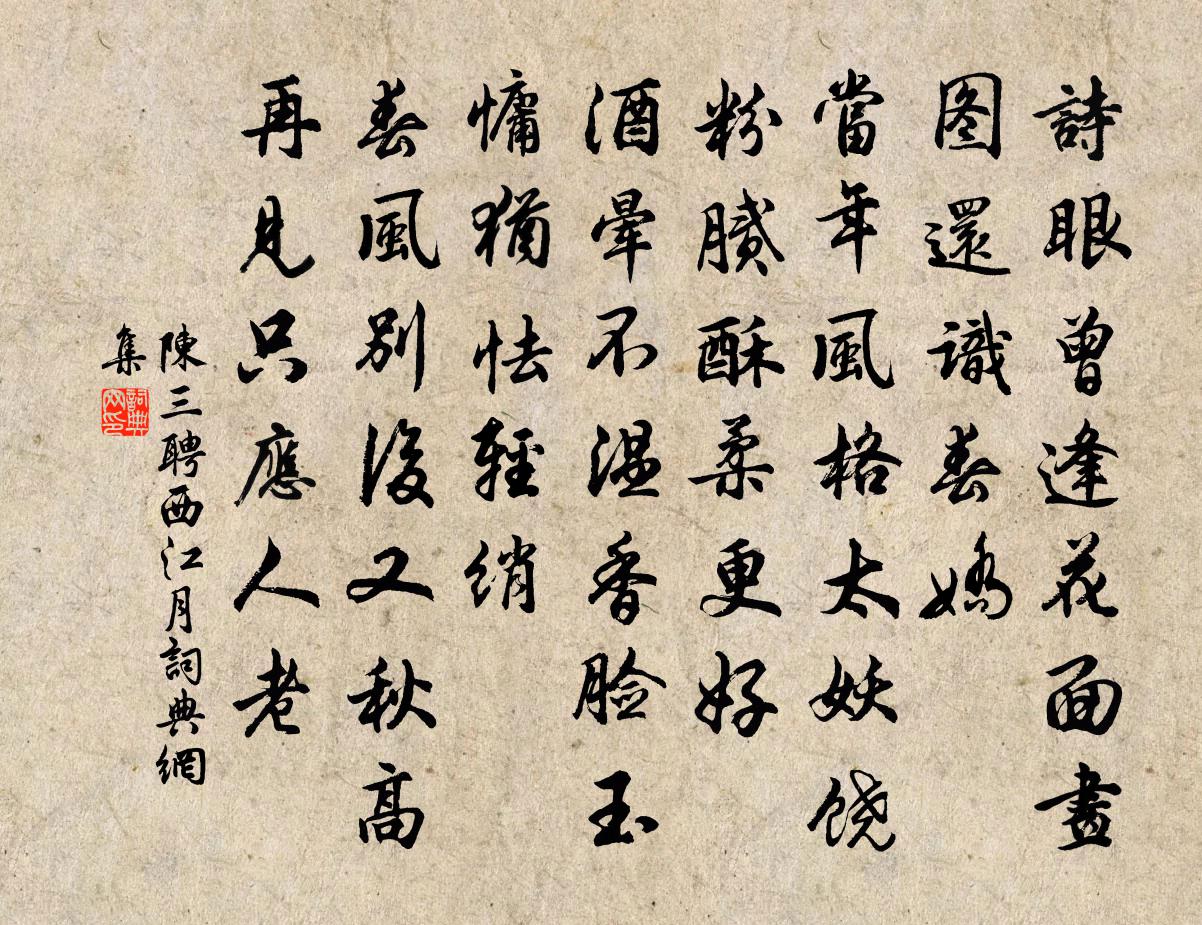 詩眼曾逢花面畫
图還識春嬌
當年風格太妖饶
粉膩酥柔更好
酒暈不温香脸玉
慵猶怯輕绡
春風別後又秋高
再見只應人老
陳三聘西江月詞典網
集
詞典
网印